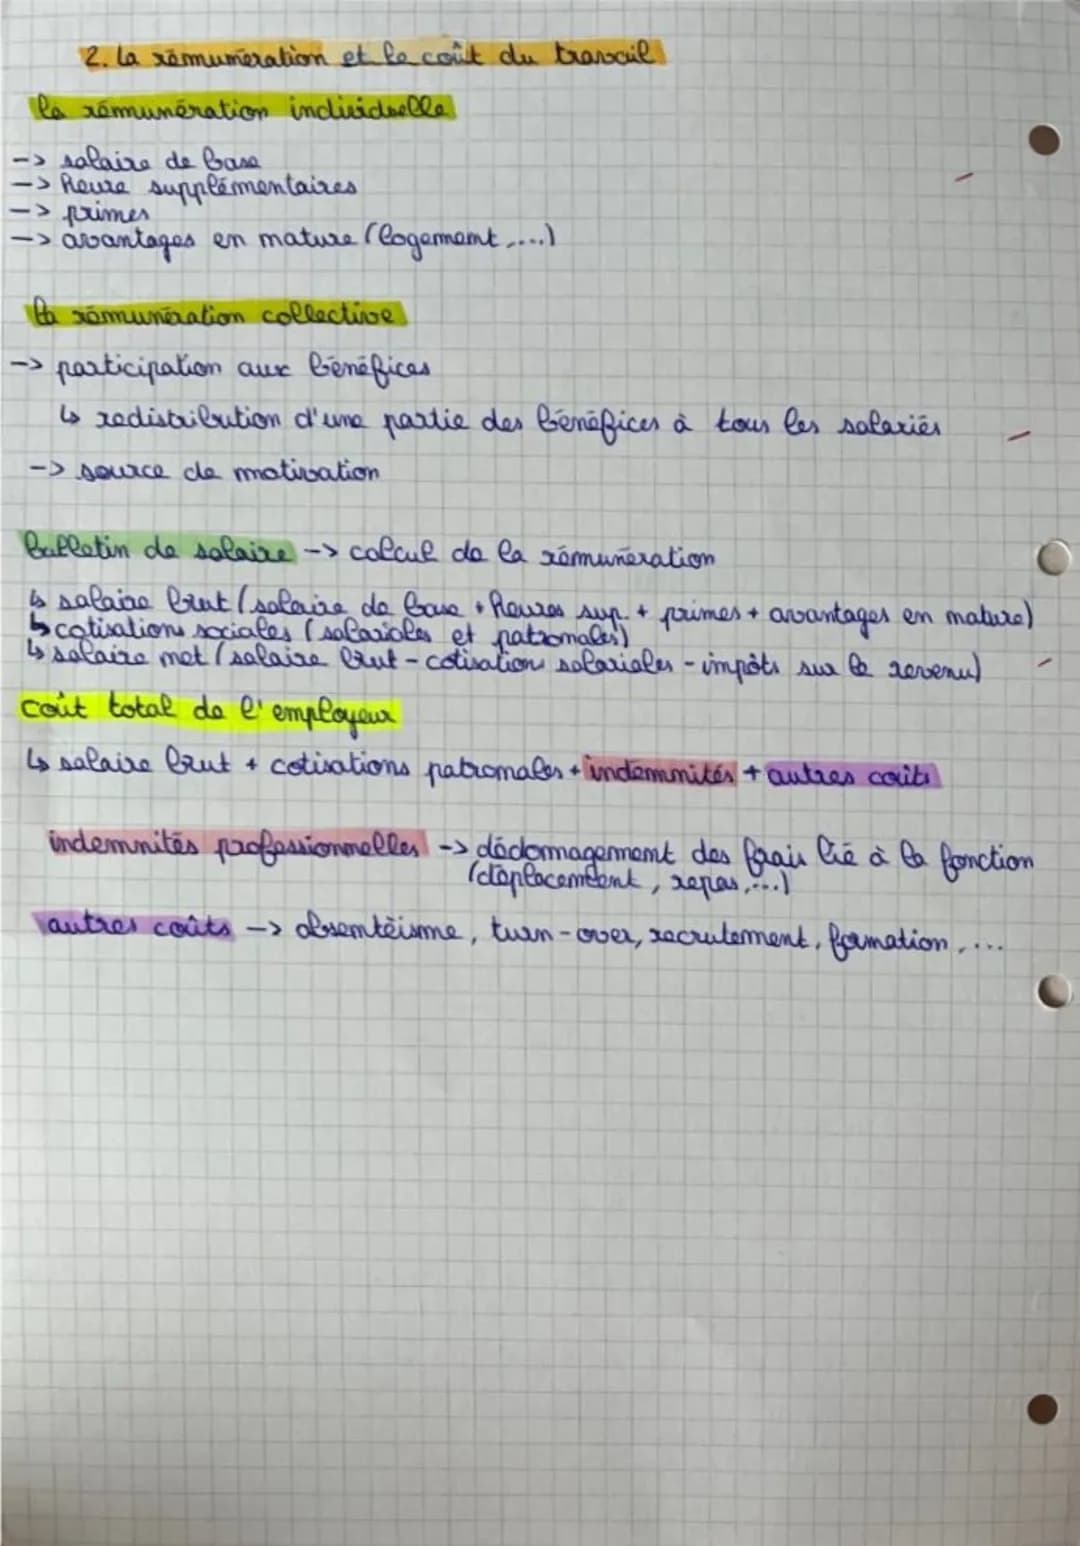 2. La rémunération et le coût du travail
la rémunération individuelle
-> salaire de base
-> heure supplémentaires
-> primes
-> avantages en nature (logement,...)
la rémunération collective
-> participation aux bénéfices
↳ redistribution d'une partie des bénéfices à tous les salariés
-> source de motivation
bulletin de salaire -> calcul de la rémunération
↳ salaire brut (salaire de base + heures sup + primes + avantages en nature)
↳ cotisations sociales (salariales et patronales)
↳ salaire net (salaire brut - cotisation salariales - impôts sur le revenu)
coût total de l'employeur
↳ salaire brut + cotisations patronales + indemnités + autres coûts
indemnités professionnelles -> dédomagement des frais lié à la fonction
(déplacement, repas,...)
autres coûts -> absentéisme, turn-over, recrutement, formation,...